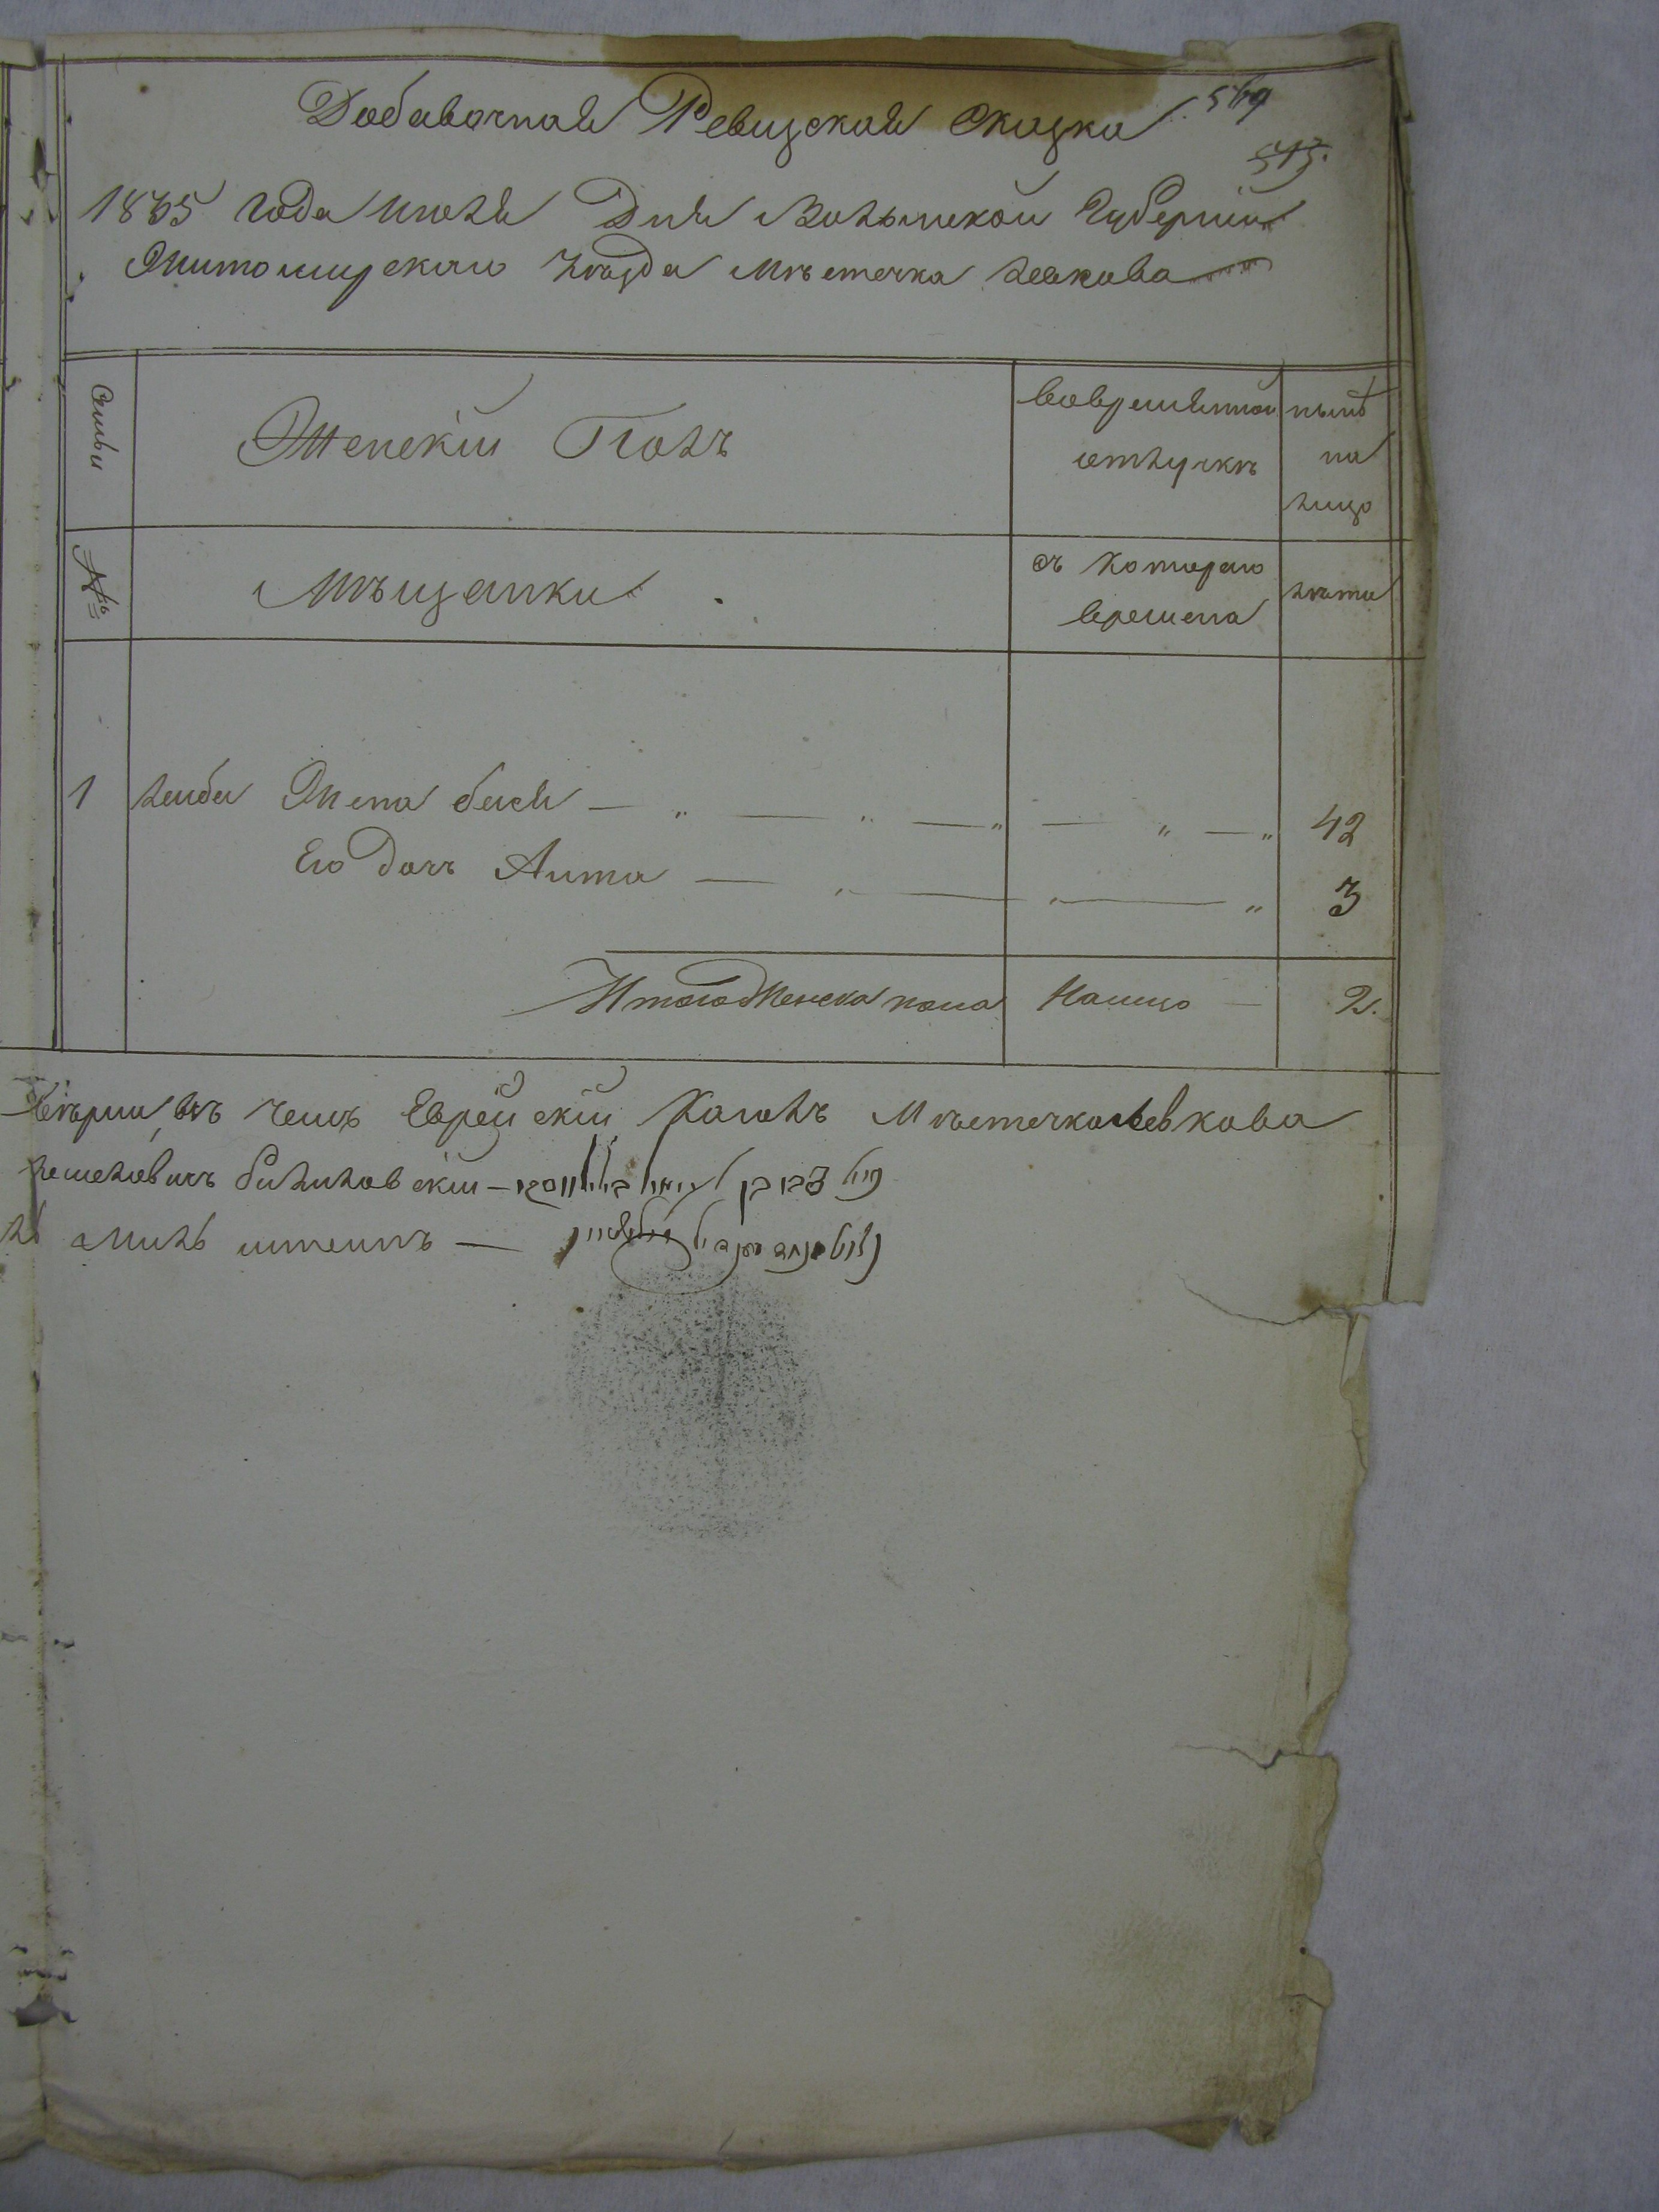 Добавочная Ревизская Сказка 569
513.
1835 года июля Дня Волынской Губернии
Житомирскаго Уѣзда Мѣстечка Левкова
Семьи
Женскій Полъ
Вовременной отлучкѣ
нынѣ на лицо
№
Мѣщанки
съ Котораго времени
лѣта
1 Лейбы Жена бася — „ — „ — „ — „ — „ 42
Его дочь Анта — „ — „ — „ 3
Итого Женска пола Налицо — 2.
въ чемъ Еврейскій Кагалъ Мѣстечка Левкова
билиловскій —
штеинъ —